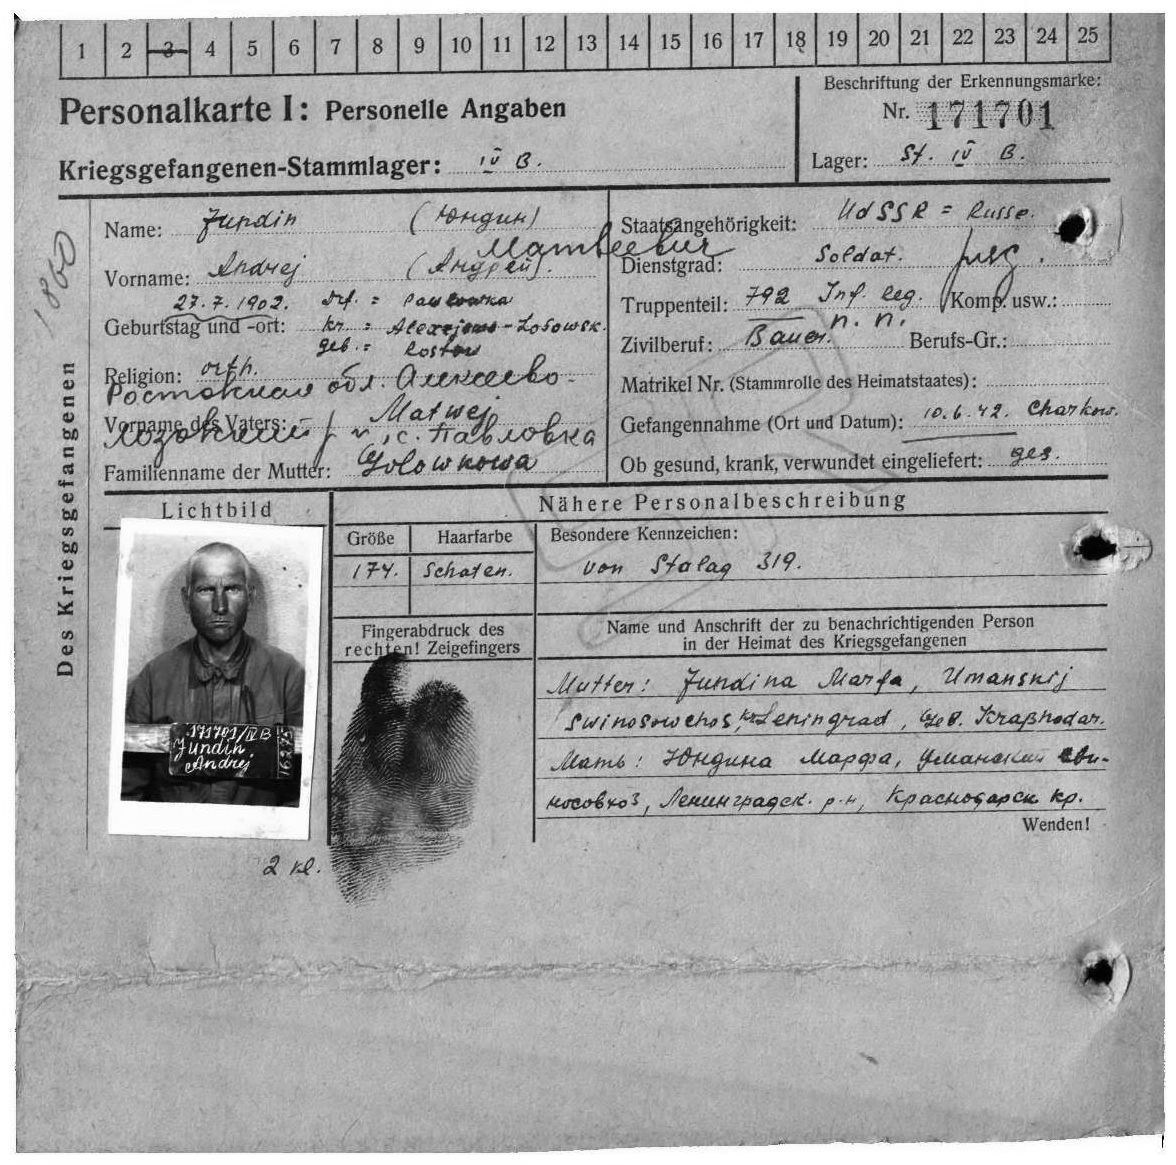 1 2 3 4 5 6 7 8 9 10 11 12 13 14 15 16 17 18 19 20 21 22 23 24 25
Personalkarte I: Personelle Angaben
Kriegsgefangenen-Stammlager: IV B.
Beschriftung der Erkennungsmarke:
Nr. 171701
Lager: St. IV B.
1860
Des Kriegsgefangenen
Name: Jundin (Юндин)
Матвеевич
Vorname: Andrej (Андрей).
27.7.1902. Drf. = Pawlowka
Geburtstag und -ort: kr. = Alexejewo-Losowsk.
geb.= Rostow
Religion: orth.
Ростовская обл. Алексеево-
Vorname des Vaters: Matwej
Лозовский р-н, с. Павловка
Familienname der Mutter: Golowkowa
Staatsangehörigkeit: UdSSR = Russe.
Dienstgrad: Soldat.
Truppenteil: 792 Inf. Reg. Komp. usw.:
n. n.
Zivilberuf: Bauer. Berufs-Gr.:
Matrikel Nr. (Stammrolle des Heimatstaates):
Gefangennahme (Ort und Datum): 10.6.42. Charkow.
Ob gesund, krank, verwundet eingeliefert: ges.
Lichtbild
171701/IV B
Jundin
Andrej
Nähere Personalbeschreibung
Größe Haarfarbe
174.
Besondere Kennzeichen:
von Stalag 319.
Fingerabdruck des
rechten! Zeigefingers
Name und Anschrift der zu benachrichtigenden Person
in der Heimat des Kriegsgefangenen
Mutter: Jundina Marfa, Umanskij
Swinosowchos, kr. Leningrad, Geb. Kraßnodar.
Мать: Юндина Марфа, Уманский сви-
носовхоз, Ленинградск. р-н, Краснодарск кр.
Wenden!
2 kl.